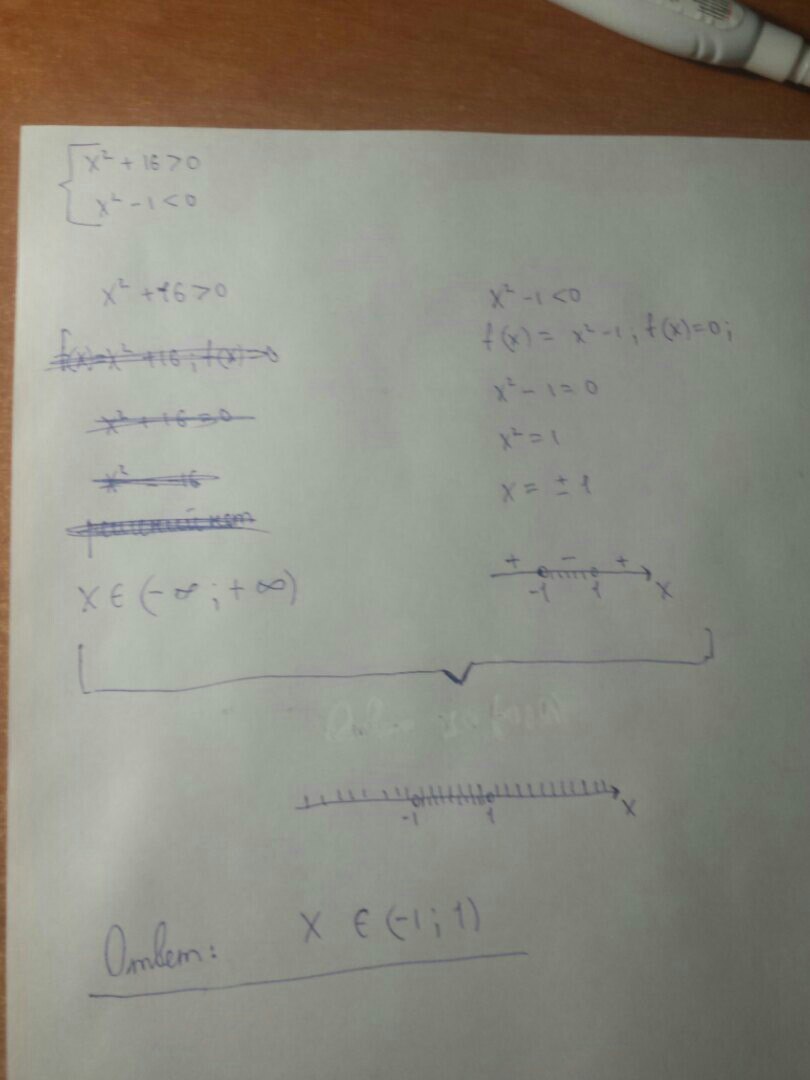 x² + 16 > 0
x² - 1 < 0
x² + 16 > 0
f(x) = x² + 16; f(x) = 0
x² + 16 = 0
x² = -16
решений нет
x ∈ (-∞; +∞)
x² - 1 < 0
f(x) = x² - 1, f(x) = 0;
x² - 1 = 0
x² = 1
x = ± 1
+ - +
-1 1 x
-1 1 x
Ответ: x ∈ (-1; 1)